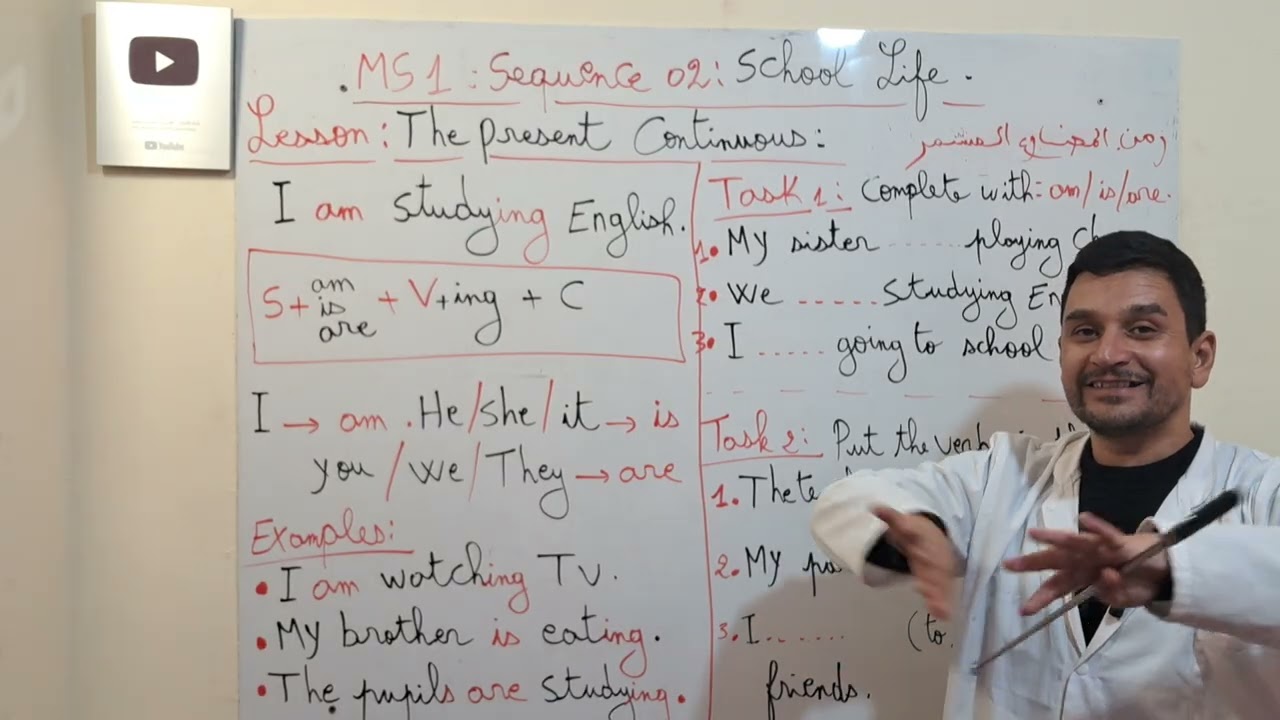 . MS1 : Sequence 02: School Life .
Lesson: The present Continuous:
زمن المضارع المستمر
I am studying English.
S + am / is / are + V+ing + C
I → am . He / She / it → is
you / we / They → are
Examples:
• I am watching TV.
• My brother is eating.
• The pupils are studying.
Task 1: Complete with: am/is/are.
1. My sister ...... playing
2. We ...... studying
3. I ..... going to school
Task 2: Put the
1. The
2. My
3. I ....... (to
friends.
YouTube